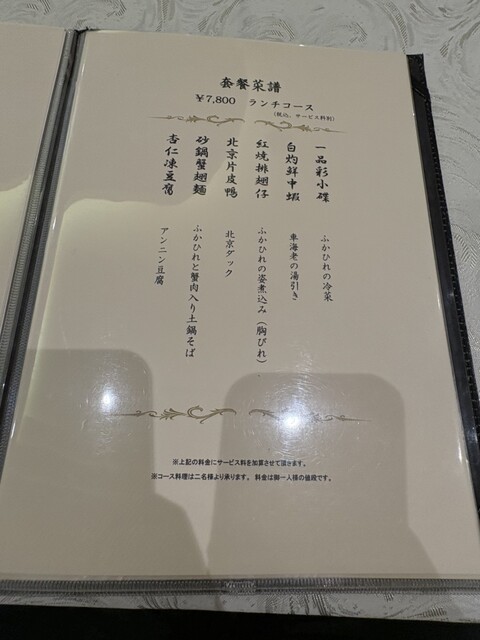 套餐菜譜
¥7,800 ランチコース
(税込、サービス料別)
一品彩小碟
白灼鮮中蝦
紅焼排翅仔
北京片皮鴨
砂鍋蟹翅麺
杏仁凍豆腐
ふかひれの冷菜
車海老の湯引き
ふかひれの姿煮込み(胸びれ)
北京ダック
ふかひれと蟹肉入り土鍋そば
アンニン豆腐
※上記の料金にサービス料を加算させて頂きます。
※コース料理は二名様より承ります。 料金は御一人様の値段です。